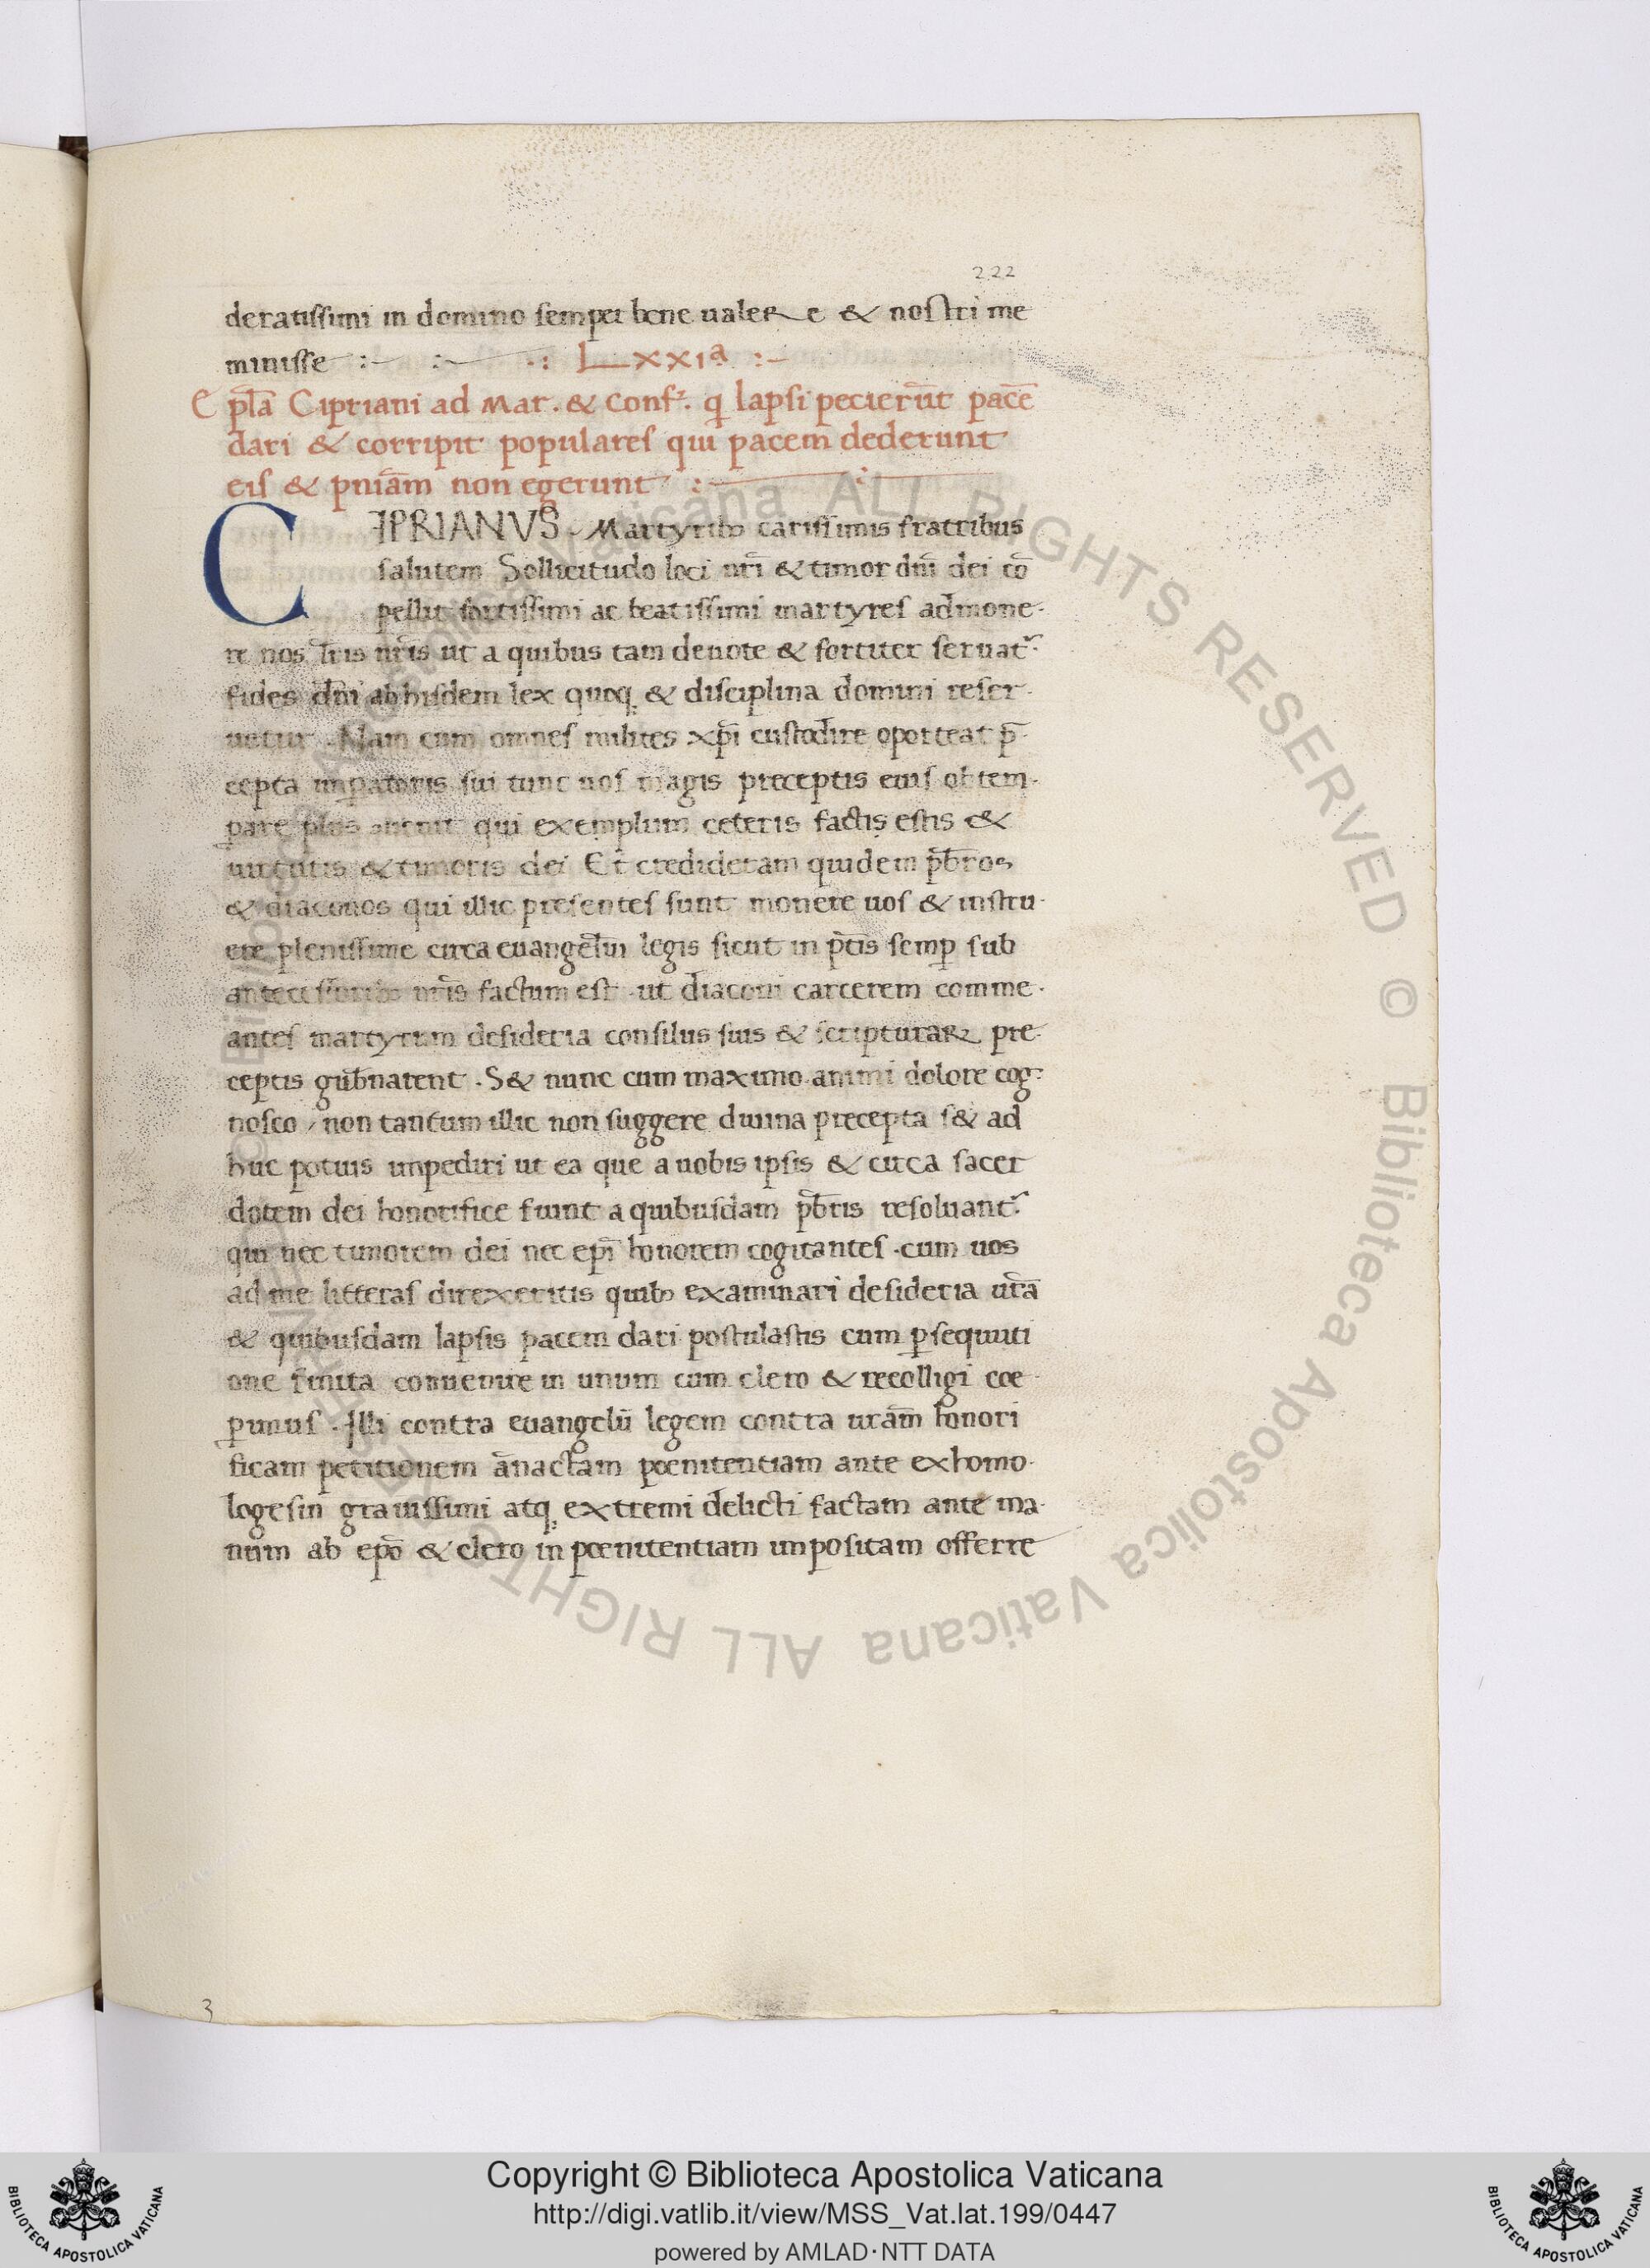 222
deratissimi in domino semper bene ualeRe & nostri me
minisse :- :- .: LXXIª :-
Epl̄a Cipriani ad Mar. & Conf2. q̣ lapsi pecierūt pacē
dari & corripit populares qui pacem dederunt
eis & pn̄iam non egerunt :- :-
CIPRIANVS. Martyrib3 carissimis fratribus
salutem Sollicitudo loci nr̄i & timor dn̄i dei cō
pellit fortissimi ac beatissimi martyres admone-
re nos l̄ris nr̄is ut a quibus tam deuote & fortiter seruat᷑
fides dn̄i ab hisdem lex quoq; & disciplina domini reser-
uetur. Nam cum omnes milites xp̄i custodire oporteat p̄-
cepta imꝑatoris sui tunc nos magis preceptis eius obtem-
ꝑare plus qui exemplum ceteris factis estis &
uirtutis & timoris dei Et credideram quidem pb̄ros
& diaconos qui illic presentes sunt monere uos & instru-
ere plenissime circa euangelīi legis sicut in p̄tis semꝑ sub
antecessorib3 nr̄is factum est. ut diaconi carcerem comme-
antes martyrum desideria consiliis suis & scripturaꝝ pre-
ceptis gub̄narent. S& nunc cum maximo animi dolore cog-
nosco, non tantum illic non suggere diuina precepta s& ad
huc potius impediri ut ea que a uobis ipsis & circa sacer
dotem dei honorifice fiunt a quibusdam pb̄ris resoluant᷑
qui nec timorem dei nec epī honorem cogitantes. cum uos
ad me litteras direxeritis quib3 examinari desideria ur̄a
& quibusdam lapsis pacem dari postulastis cum ꝑsequuti
one finita conuenire in unum cum clero & recolligi coe-
ꝑimus. Illi contra euangelii legem contra ur̄am honori
ficam petitionem ān actam poenitentiam ante exhomo-
logesin grauissimi atq; extremi delicti factam ante ma-
num ab ep̄o & clero in poenitentiam impositam offerre
3
© Biblioteca Apostolica Vaticana ALL RIGHTS RESERVED © Biblioteca Apostolica Vaticana ALL RIGHTS RESERVED
Copyright © Biblioteca Apostolica Vaticana
http://digi.vatlib.it/view/MSS_Vat.lat.199/0447
powered by AMLAD·NTT DATA
BIBLIOTECA APOSTOLICA VATICANA
BIBLIOTECA APOSTOLICA VATICANA